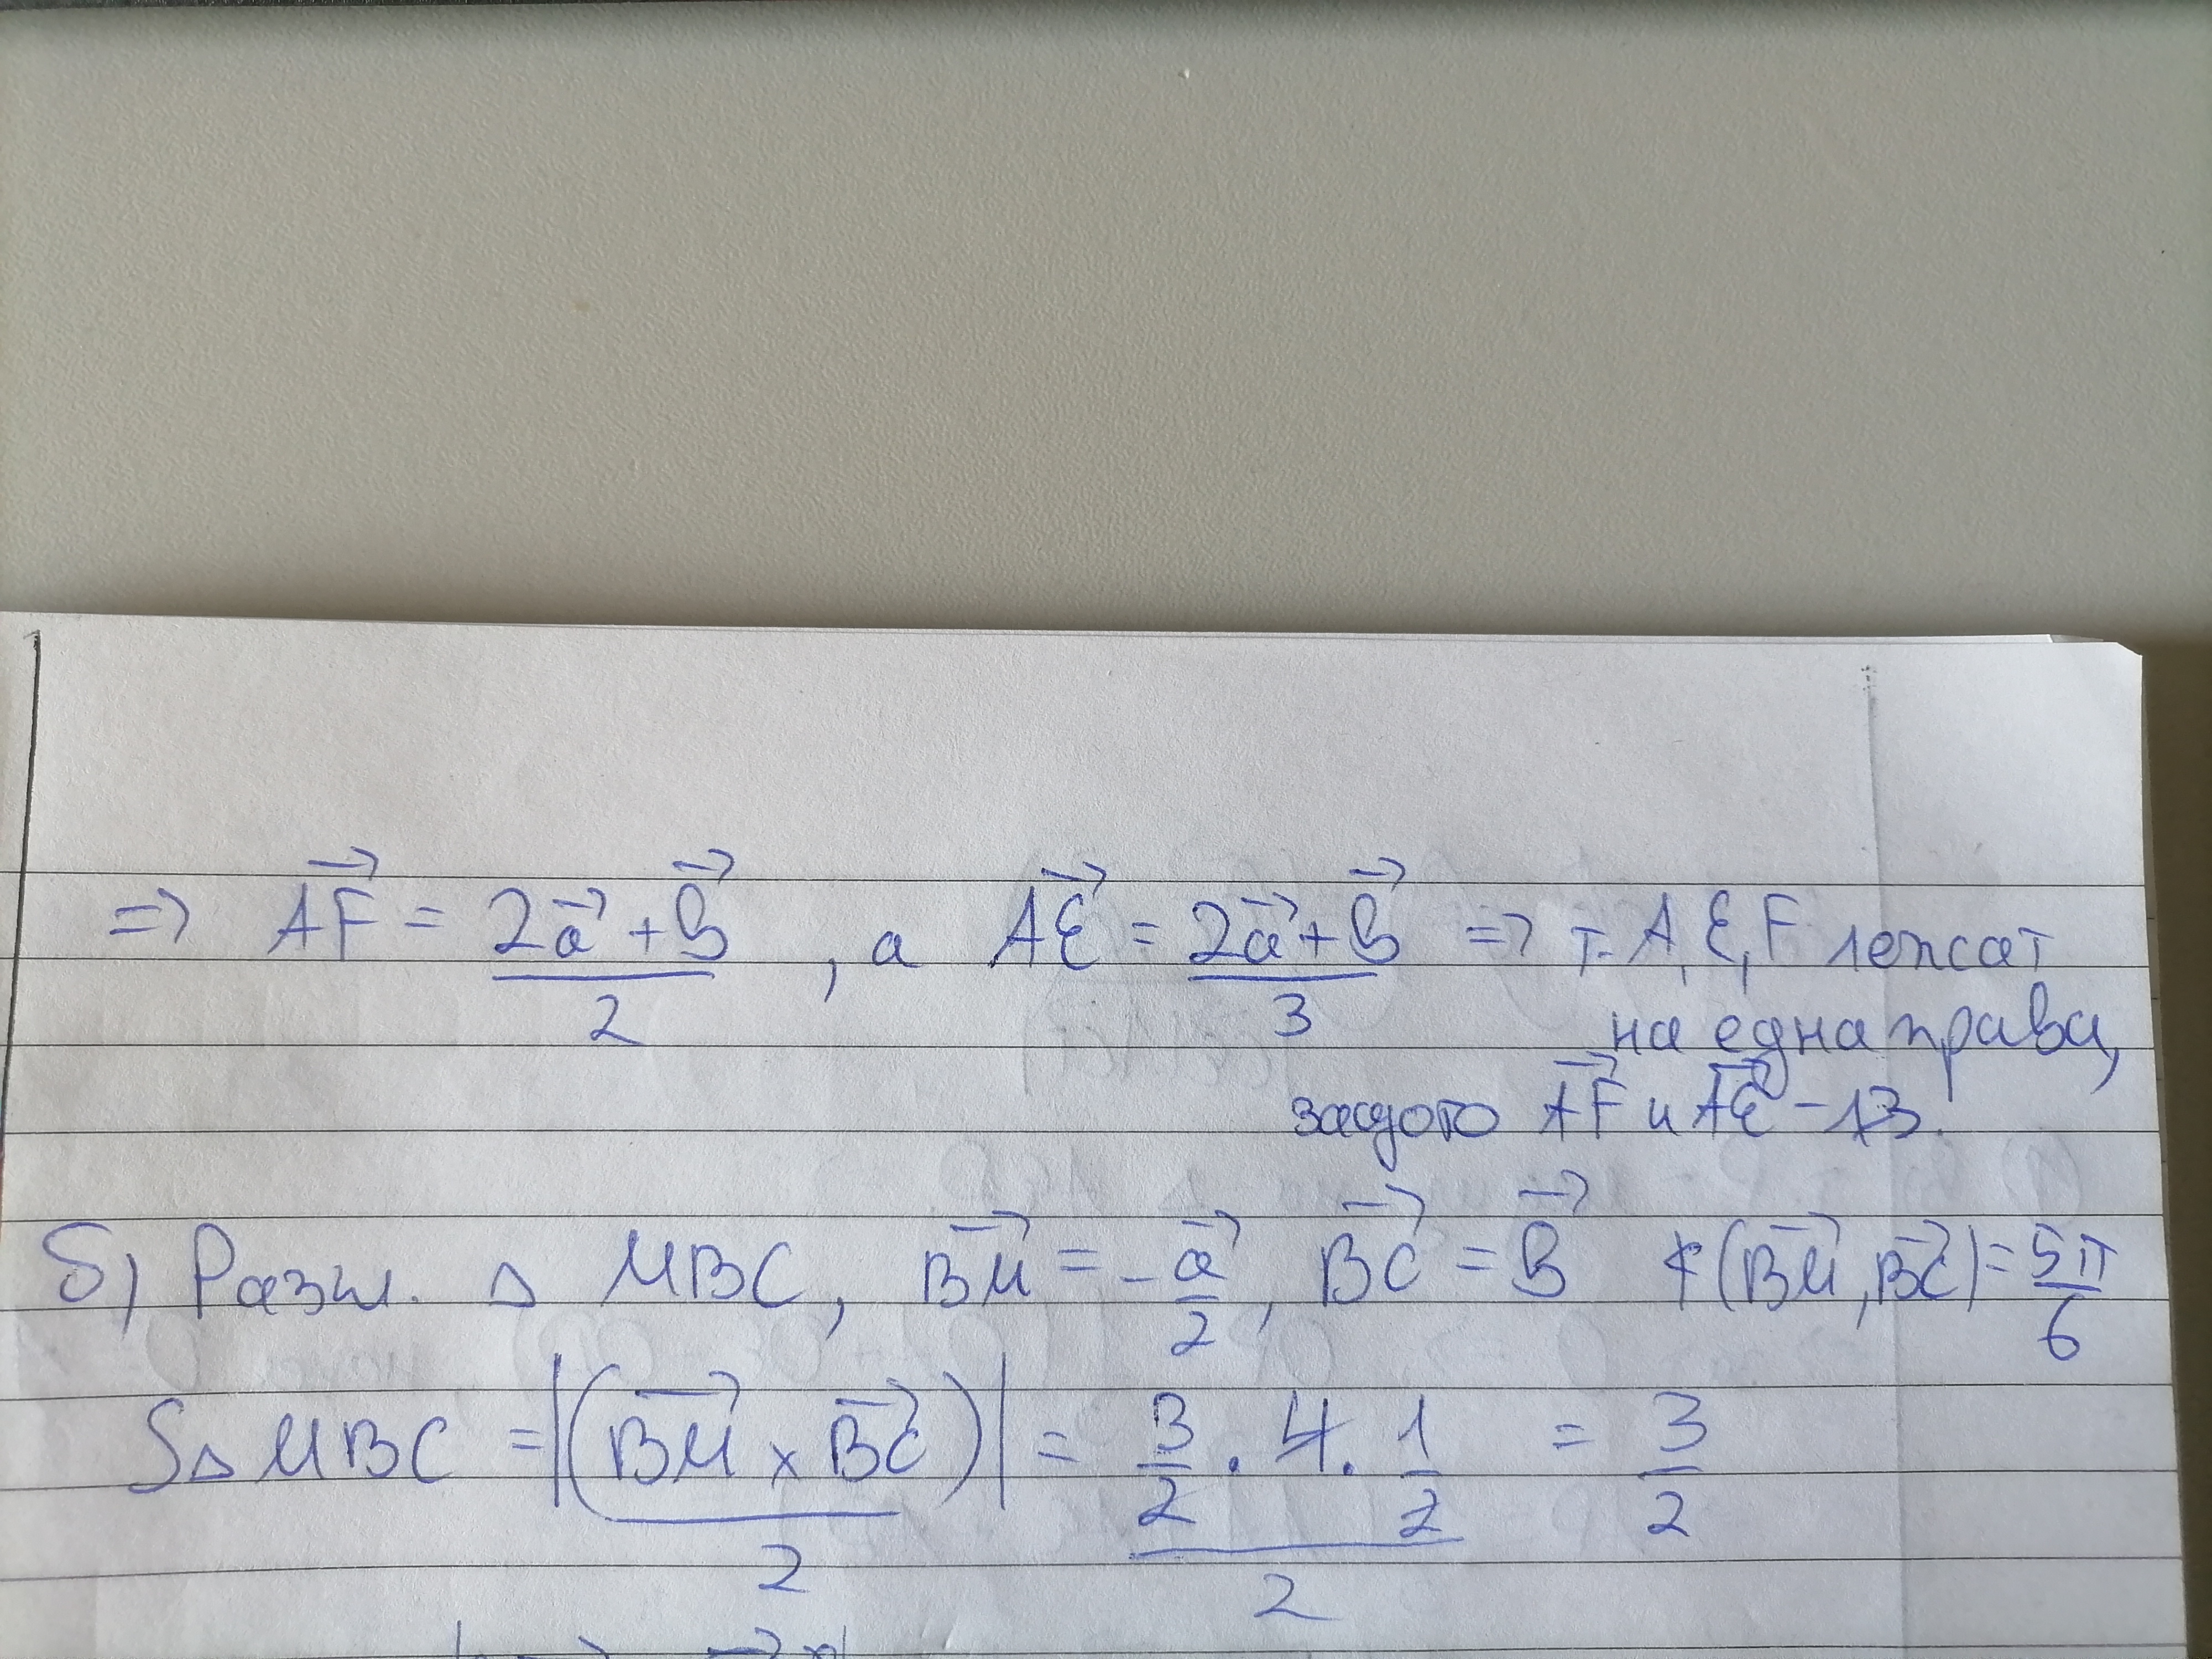 => AF→ = (2a→ + b→)/2 , а AE→ = (2a→ + b→)/3 => т. A, E, F лежат
на една права,
защото AF→ и AE→ - ЛЗ.
б) Разгл. △ MBC, BM→ = -a→/2, BC→ = b→ ∢(BM→, BC→) = 5π/6
S△MBC = |(BM→ × BC→)/2| = (3/2 . 4 . 1/2)/2 = 3/2